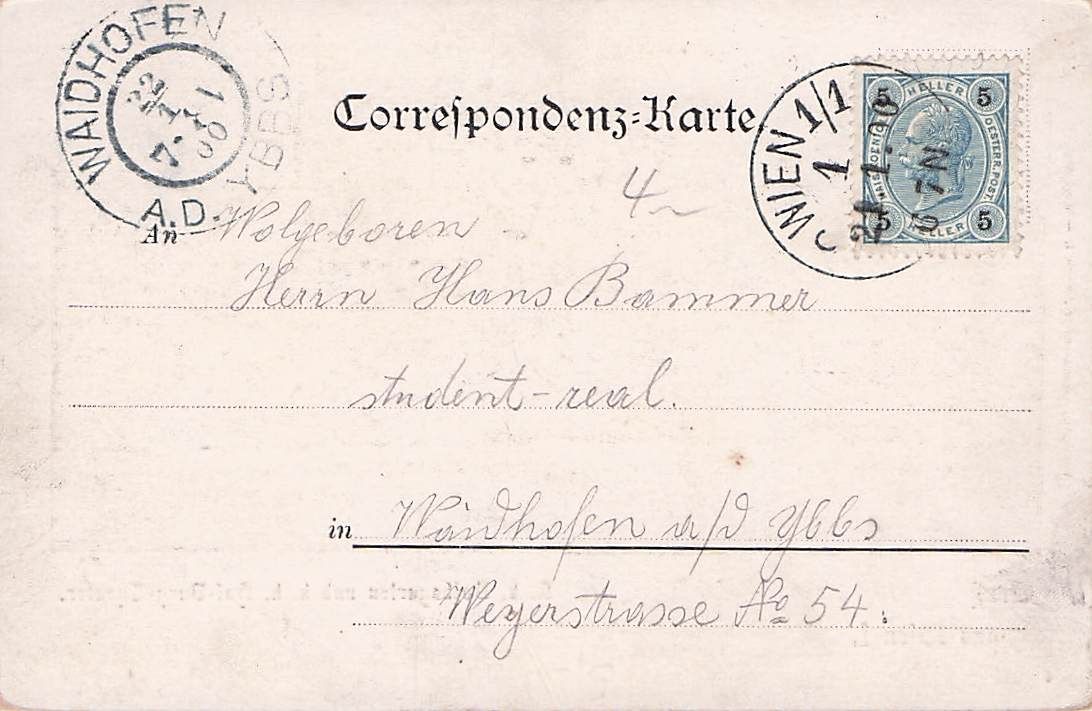 WAIDHOFEN
A.D. YBBS
Correspondenz-Karte
WIEN 1/1
1
7 N
5 HELLER 5
OESTERR. POST.
5 HELLER 5
4
An Wolgeboren
Herrn Hans Bammer
student-real.
in Waidhofen a/d Ybbs
Weyerstrasse No 54.